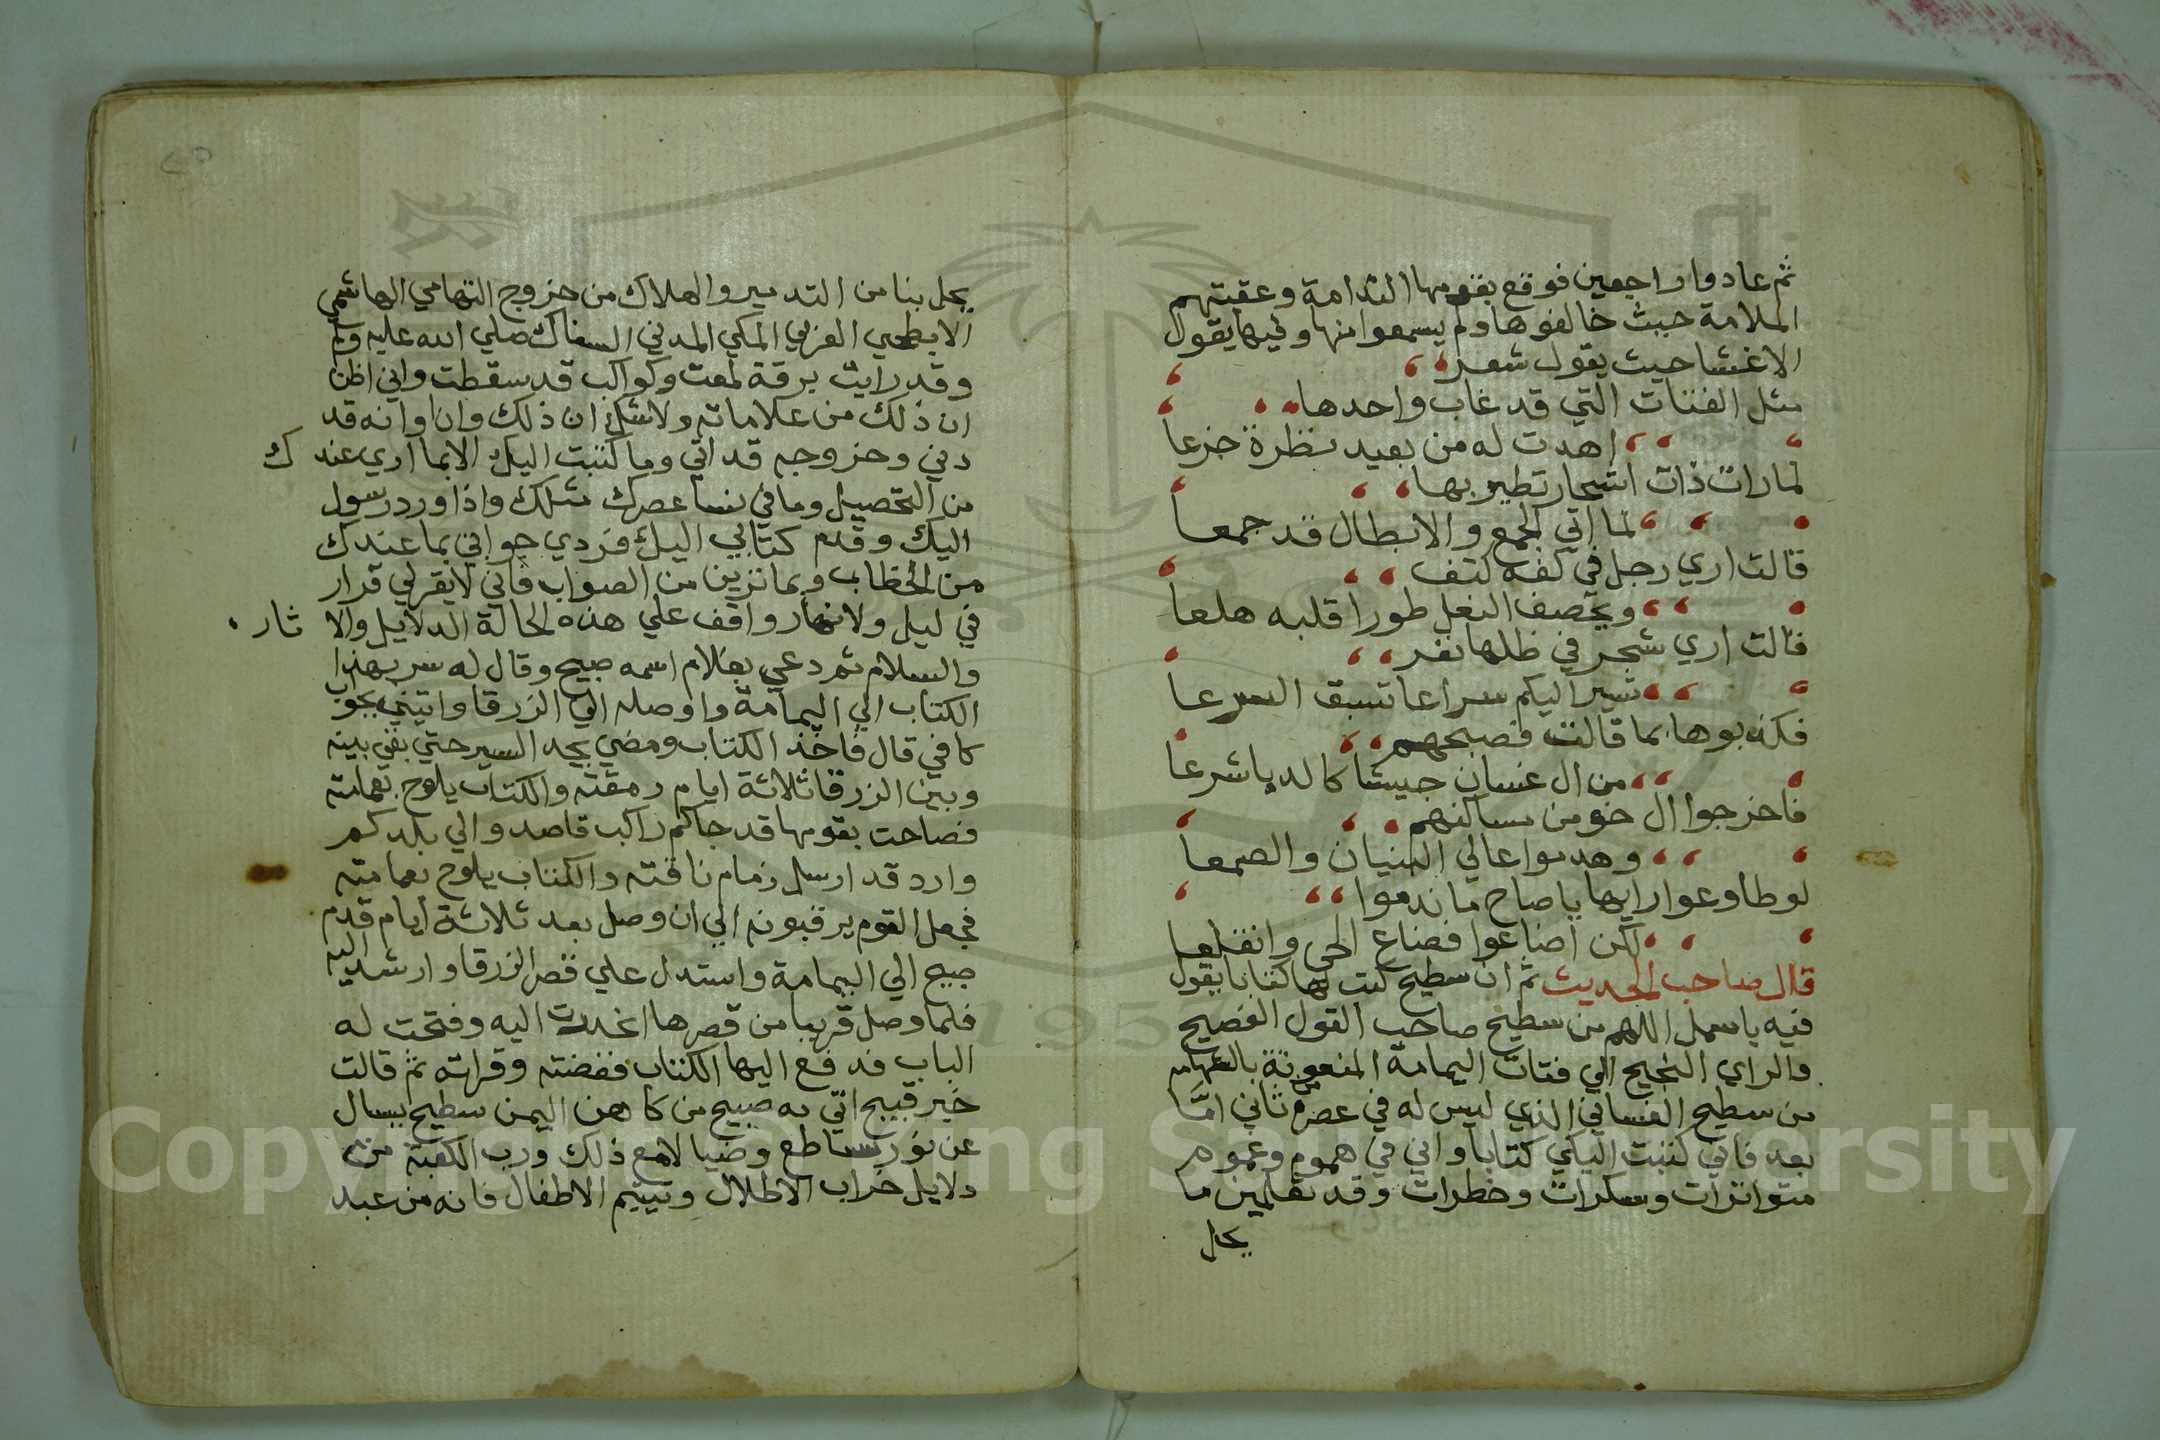 ثم عادوا راجعين فوقع بقومها الندامة وعقبتهم
الملامة حيث خالفوها ولم يسمعوا منها وفيها يقول
الاغشا حيث يقول شعر
مثل الفتات التي قد غاب واحدها
اهدت له من بعيد نظرة جزعا
لما رات ذات اشجار تطير بها
لما اتي الجمع والابطال قد جمعا
قالت اري رجل في كفه كتف
ويخصف النعل طورا قلبه هلعا
قالت اري شجر في ظلها نفر
تسير اليكم سراعا تسبق السرعا
فكذبوها بما قالت فصبحهم
من ال غسان جيشا كالدبا شرعا
فاخرجوا ال خو من مساكنهم
وهدموا عالي البنيان والصمعا
لوطاوعوا رايها يا صاح ما ندموا
لكن اضاعوا فضاع الحي وانقلعا
قال صاحب الحديث ثم ان سطيح كتب لها كتابا يقول
فيه باسمك اللهم من سطيح صاحب القول الفصيح
والراي النجيح الي فتات اليمامة المنعوتة بالشهامه
من سطيح الغساني الذي ليس له في عصره من ثاني امّا
بعد فاني كتبت اليكي كتابا واني في هموم وغموم
متواترات وسكرات وخطرات وقد تعلمين ما
يحل
٢٥
يحل بنا من التدمير والهلاك من خروج التهامي الهاشمي
الابطحي العربي المكي المدني السفاك صلي الله عليه وسلم
وقد رايت برقة لمعت وكواكب قد سقطت واني اظن
ان ذلك من علاماته ولا شك ان ذلك وان اوانه قد
دني وخروجه قد اتي وما كتبت اليك الا بما اري عندك
من التحصيل وما في نسا عصرك مثلك واذا ورد رسول
اليك وقدم كتابي اليك فردي جوابي بما عندك
من الخطاب وبما تزين من الصواب فاني لا يقر لي قرار
في ليل ولا نهار واقف علي هذه الحالة الدلايل والاثار
والسلام ثم دعي بغلام اسمه صبيح وقال له سر بهذا
الكتاب الي اليمامة واوصله الي الزرقا واتيني بجواب
كافي قال فاخذ الكتاب ومضي يجد السير حتي بقي بينه
وبين الزرقا ثلاثة ايام رمقته والكتاب يلوح بعمامته
فصاحت بقومها قد جاكم راكب قاصد والي بلدكم
وارد قد ارسل زمام ناقته والكتاب يلوح بعمامته
فجعل القوم يرقبونه الي ان وصل بعد ثلاثة ايام قدم
صبيح الي اليمامة واستدل علي قصر الزرقا وارشد اليه
فلما وصل قريبا من قصرها انحدرت اليه وفتحت له
الباب فدفع اليها الكتاب ففضته وقراته ثم قالت
خبر قبيح اتي به صبيح من كاهن اليمن سطيح يسال
عن نور ساطع وضيا لامع ذلك ورب الكعبة من
دلايل خراب الاطلال وتيتيم الاطفال فانه من عبد